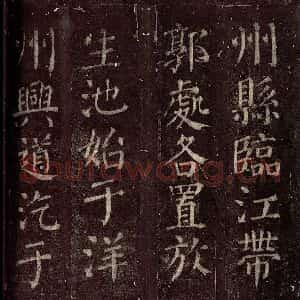 州縣臨江帶
郭處各置放
生池始于洋
州興道汔于